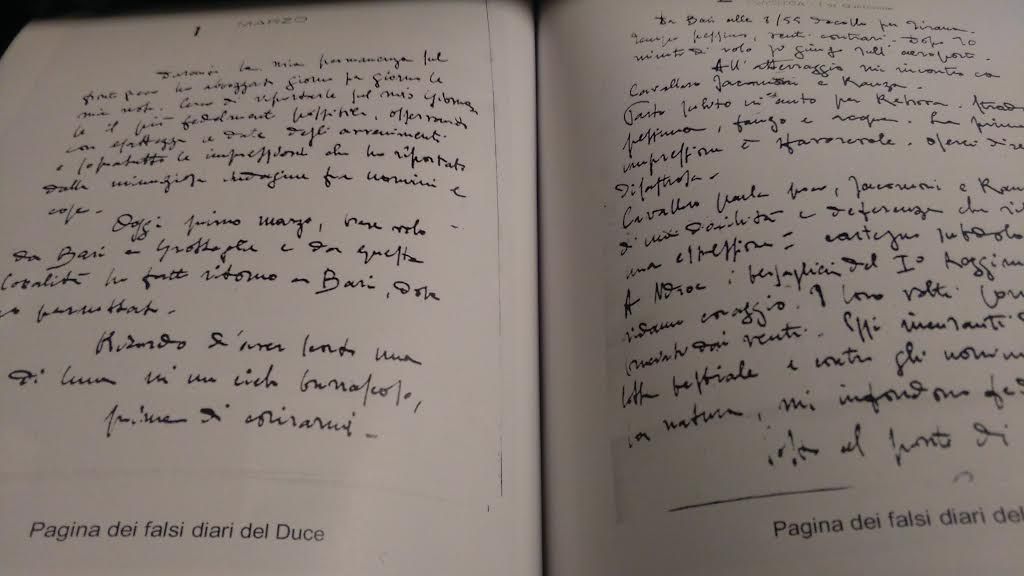 1 MARZO
Durante la mia permanenza sul
fronte greco ho abbozzato giorno per giorno le
mie note. Cerco di riportarle sul mio giornale
il più fedelmente possibile, osservando
con esattezza e date degli avvenimenti
e soprattutto le impressioni che ho riportato
dalla minuziosa indagine fra uomini e
cose.
Oggi primo marzo, breve volo
da Bari a Grottaglie e da questa
località ho fatto ritorno a Bari, dopo
pernottato.
Ricordo d'aver scorto una
di luna in un cielo burrascoso,
prima di coricarmi.
Pagina dei falsi diari del Duce
Da Bari alle 8/55 decollo per Tirana.
tempo pessimo, venti contrari. Dopo 70
minuti di volo giungo sull'aeroporto.
All'atterraggio mi incontro con
Cavallero Jacomoni e Ranza.
Parto subito in auto per Rehova. Strada
pessima, fango e acqua. La prima
impressione è sfavorevole. oserei dire
disastrosa.
Cavallero parla poco, Jacomoni e Ranza
di una docilità e deferenza che
una espressione: contegno
A i bersaglieri del I° Reggimento
ridanno coraggio! I loro volti
bruciati dai venti. Essi incuranti
lotta bestiale e contro gli uomini
la natura, mi infondono
al ponte di
Pagina dei falsi diari del